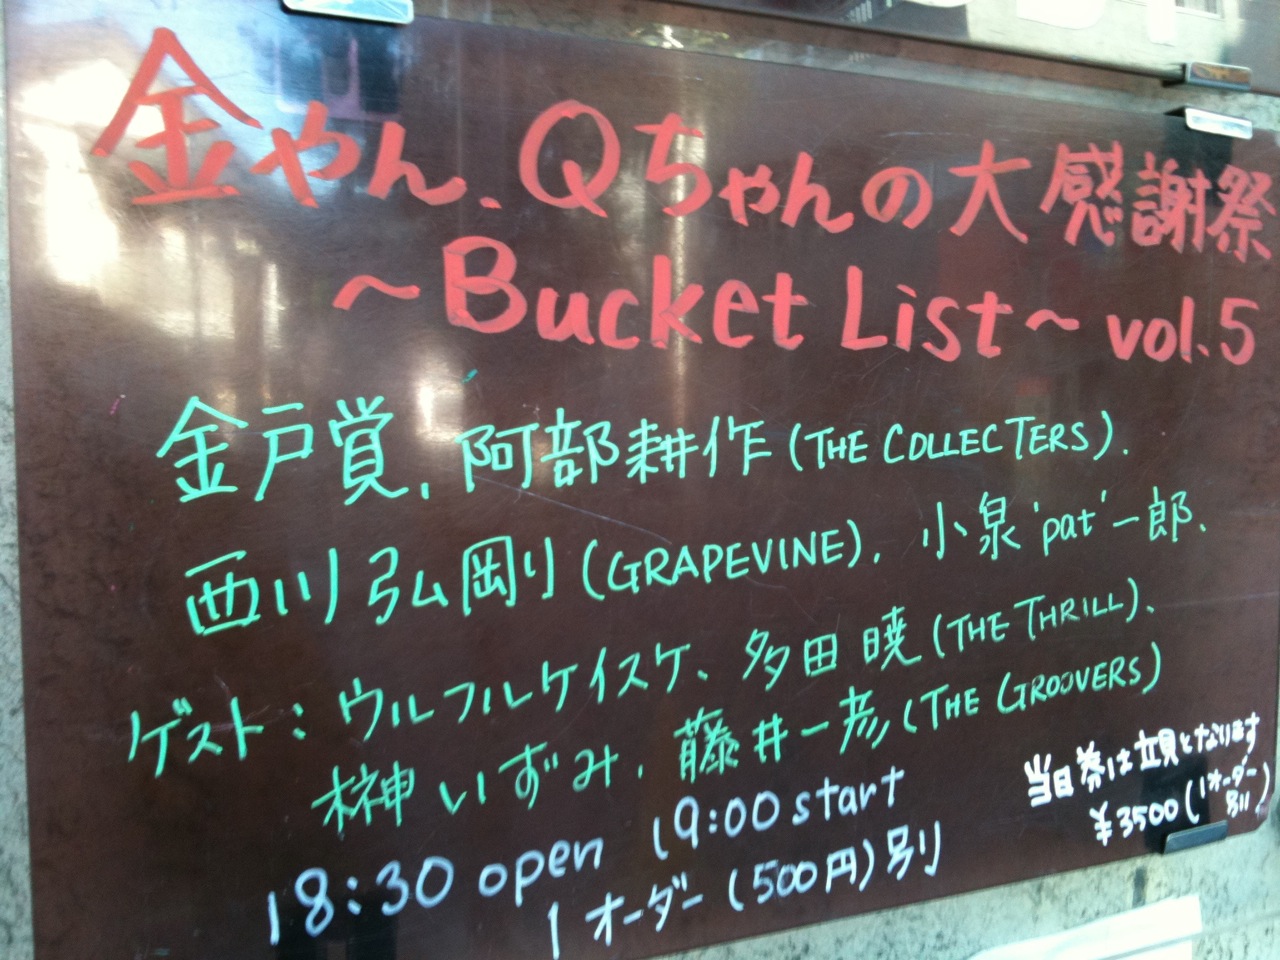 金やん、Qちゃんの大感謝祭
～Bucket List～ vol.5
金戸覚、阿部耕作(THE COLLECTERS)、
西川弘剛(GRAPEVINE)、小泉'pat'一郎、
ゲスト:ウルフルケイスケ、多田暁(THE THRILL)、
榊いずみ、藤井一彦(THE GROOVERS)
18:30 open 19:00 start
1オーダー(500円)別
当日券は立見となります
¥3500(1オーダー別)